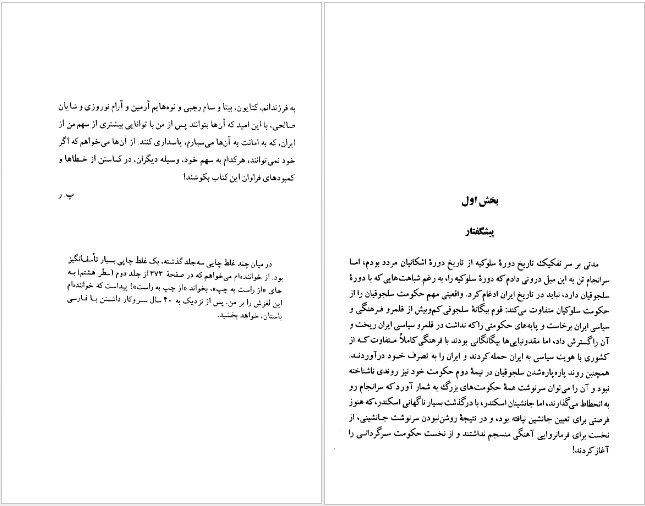 بخش اول
پیشگفتار
مدتی بر سر تفکیک تاریخ دورهٔ سلوکیه از تاریخ دورهٔ اشکانیان مردد بودم، اما
سرانجام تن به این میل درونی دادم که دورهٔ سلوکیه را، به رغم شباهت‌هایی که با دورهٔ
سلجوقیان دارد، نباید در تاریخ ایران ادغام کرد. واقعیتی مهم حکومت سلجوقیان را از
حکومت سلوکیان متفاوت می‌کند: قوم بیگانهٔ سلجوقی کم‌وبیش از قلمرو فرهنگی و
سیاسی ایران برخاست و پایه‌های حکومتی را که نداشت در قلمرو سیاسی ایران ریخت و
آن را گسترش داد، اما مقدونیایی‌ها بیگانگانی بودند با فرهنگی کاملاً متفاوت که از
کشوری با هویت سیاسی به ایران حمله کردند و ایران را به تصرف خود درآوردند.
همچنین روند پاره‌پاره‌شدن سلجوقیان در نیمهٔ دوم حکومت خود نیز روندی ناشناخته
نبود و آن را می‌توان سرنوشت همهٔ حکومت‌های بزرگ به شمار آورد که سرانجام رو
به انحطاط می‌گذارند، اما جانشینان اسکندر، با درگذشت بسیار ناگهانی اسکندر، که هنوز
فرصتی برای تعیین جانشین نیافته بود، و در نتیجهٔ روشن‌نبودن سرنوشت جانشینی، از
نخست برای فرمانروایی آهنگی منسجم نداشتند و از نخست حکومت سرگردانی را
آغاز کردند!
به فرزندانم، کتایون، بیتا و سام رجبی و نوه‌هایم آرمین و آرام نوروزی و شایان
صالحی، با این امید که آن‌ها بتوانند پس از من با توانایی بیشتری از سهم من از
ایران، که به امانت به آن‌ها می‌سپارم، پاسداری کنند. از آن‌ها می‌خواهم که اگر
خود نمی‌توانند، هرکدام به سهم خود، وسیله دیگران، در کاستن از خطاها و
کمبودهای فراوان این کتاب بکوشند!
پ. ر
در میان چند غلط چاپی سه‌جلد گذشته، یک غلط چاپی بسیار تأسف‌انگیز
بود. از خواننده‌ام می‌خواهم که در صفحهٔ ۳۷۳ از جلد دوم (سطر هشتم) به
جای «از راست به چپ»، بخواند «از چپ به راست»! پیداست که خواننده‌ام
این لغزش را بر من، پس از نزدیک به ۴۰ سال سروکار داشتن با فارسی
باستان، خواهد بخشید.